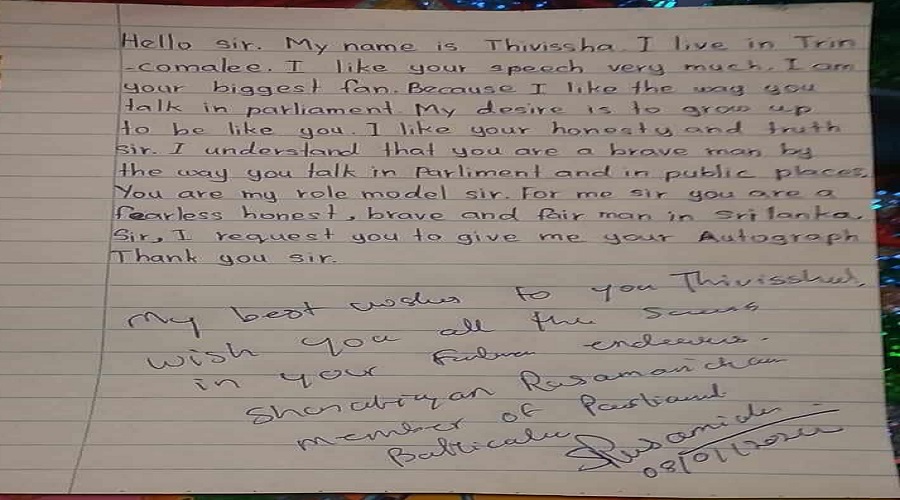 Hello sir. My name is Thivissha. I live in Trin
-comalee. I like your speech very much. I am
your biggest fan. Because I like the way you
talk in parliament. My desire is to grow up
to be like you. I like your honesty and truth
sir. I understand that you are a brave man by
the way you talk in Parliment and in public places.
You are my role model sir. For me sir you are a
fearless honest, brave and fair man in Sri lanka.
Sir, I request you to give me your Autograph
Thank you sir.
My best wishes to you Thivissha,
wish you all the
in your Future endeavours.
Shanakiyan Rasamanickam
member of Parliament
Batticaloa